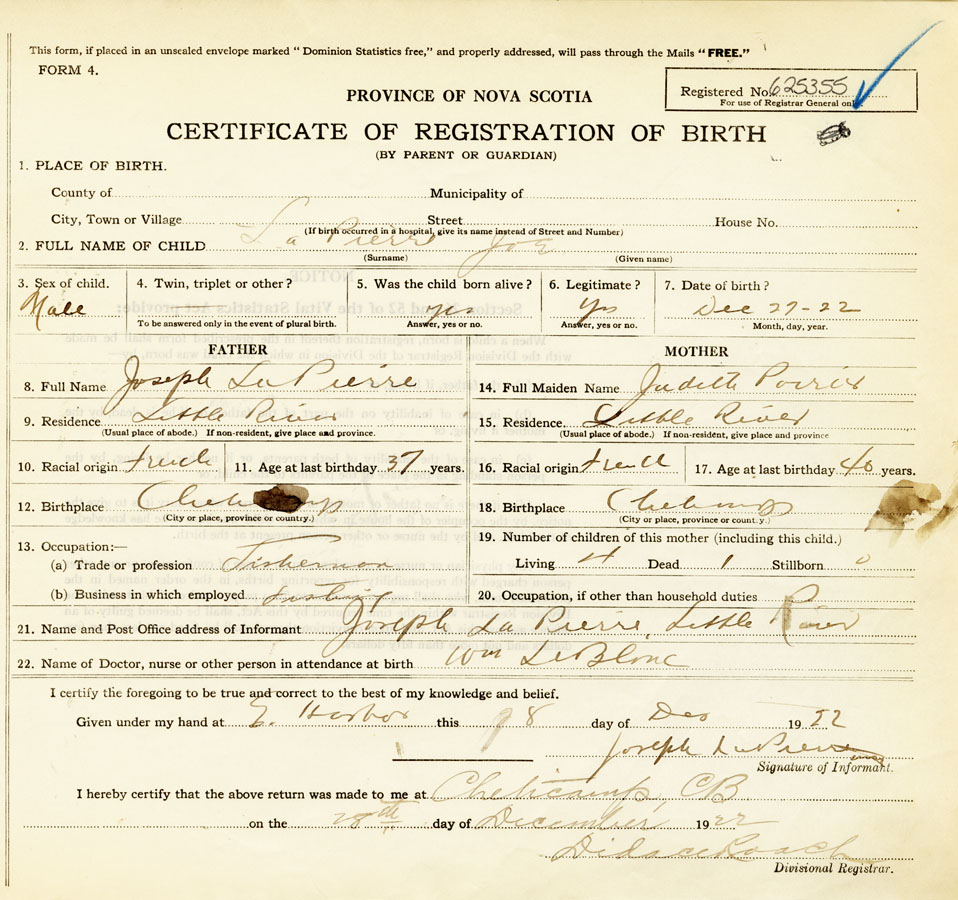 This form, if placed in an unsealed envelope marked "Dominion Statistics free," and properly addressed, will pass through the Mails "FREE."
FORM 4.
Registered No. 625355
For use of Registrar General only.
PROVINCE OF NOVA SCOTIA
CERTIFICATE OF REGISTRATION OF BIRTH
(BY PARENT OR GUARDIAN)
1. PLACE OF BIRTH.
County of Municipality of
City, Town or Village Street House No.
(If birth occurred in a hospital, give its name instead of Street and Number)
2. FULL NAME OF CHILD La Pierre Joe
(Surname) (Given name)
3. Sex of child. 4. Twin, triplet or other? 5. Was the child born alive? 6. Legitimate? 7. Date of birth?
Male yes yes Dec 27-22
To be answered only in the event of plural birth. Answer, yes or no. Answer, yes or no. Month, day, year.
FATHER
8. Full Name Joseph La Pierre
9. Residence Little River
(Usual place of abode.) If non-resident, give place and province.
10. Racial origin French 11. Age at last birthday 37 years.
12. Birthplace
(City or place, province or country.)
13. Occupation:—
(a) Trade or profession Fisherman
(b) Business in which employed Fishing
MOTHER
14. Full Maiden Name Judith Poirier
15. Residence Little River
(Usual place of abode.) If non-resident, give place and province
16. Racial origin French 17. Age at last birthday 40 years.
18. Birthplace
(City or place, province or country.)
19. Number of children of this mother (including this child.)
Living 4 Dead 1 Stillborn 0
20. Occupation, if other than household duties
21. Name and Post Office address of Informant Joseph La Pierre, Little River
22. Name of Doctor, nurse or other person in attendance at birth Wm LeBlanc
I certify the foregoing to be true and correct to the best of my knowledge and belief.
Given under my hand at E. Harbor this 28 day of Dec 1922
Joseph La Pierre
Signature of Informant.
I hereby certify that the above return was made to me at Cheticamp, CB
on the 28th day of December 1922
Didace Roach
Divisional Registrar.